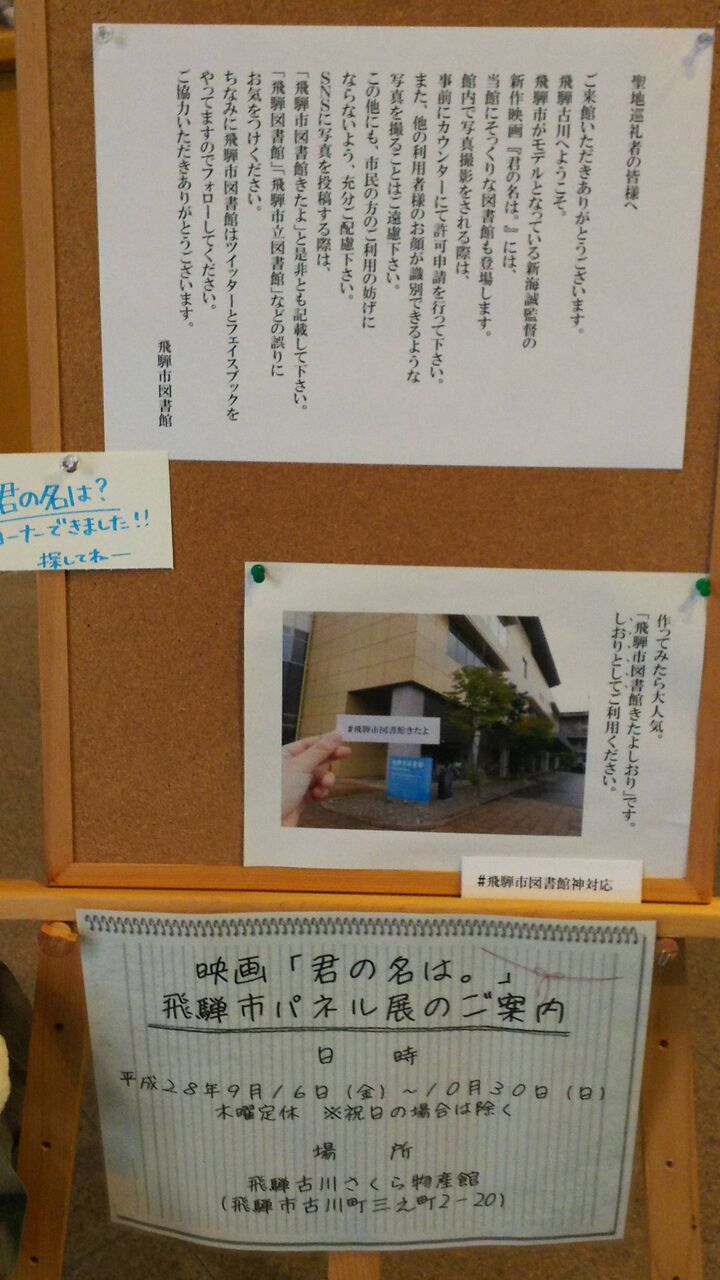 聖地巡礼者の皆様へ
ご来館いただきありがとうございます。
飛騨古川へようこそ。
飛騨市がモデルとなっている新海誠監督の
新作映画『君の名は。』には、
当館にそっくりな図書館も登場します。
館内で写真撮影をされる際は、
事前にカウンターにて許可申請を行って下さい。
また、他の利用者様のお顔が識別できるような
写真を撮ることはご遠慮下さい。
この他にも、市民の方のご利用の妨げに
ならないよう、充分ご配慮下さい。
SNSに写真を投稿する際は、
「飛騨市図書館きたよ」と是非とも記載して下さい。
「飛騨図書館」「飛騨市立図書館」などの誤りに
お気をつけください。
ちなみに飛騨市図書館はツイッターとフェイスブックを
やってますのでフォローしてください。
ご協力いただきありがとうございます。
飛騨市図書館
君の名は?
コーナーできました!!
探してねー
作ってみたら大人気。
「飛騨市図書館きたよしおり」です。
しおりとしてご利用ください。
#飛騨市図書館きたよ
飛騨市図書館
#飛騨市図書館神対応
映画「君の名は。」
飛騨市パネル展のご案内
日 時
平成28年9月16日(金)~10月30日(日)
木曜定休 ※祝日の場合は除く
場 所
飛騨古川さくら物産館
(飛騨市古川町三之町2-20)